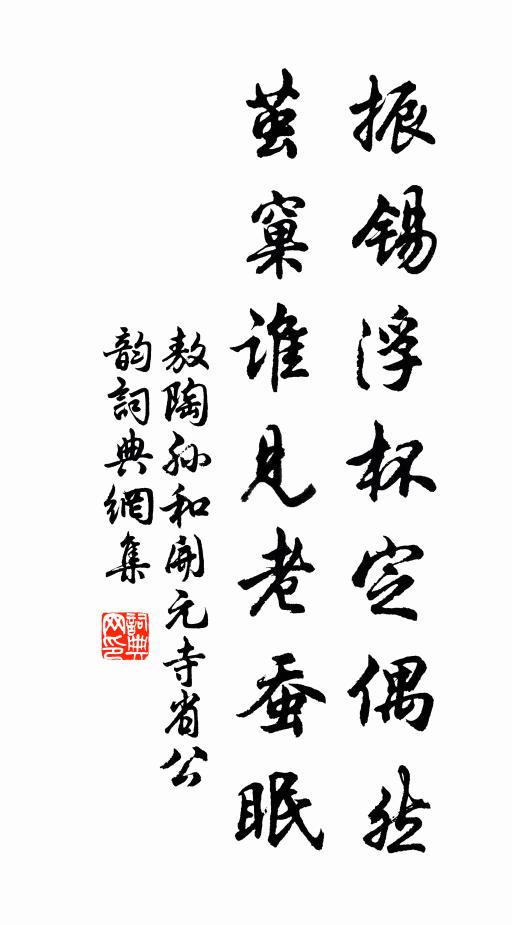 振锡浮杯定偶然
茧窠谁见老蚕眠
敖陶孙和開元寺省公
韵詞典網集
詞典
网印